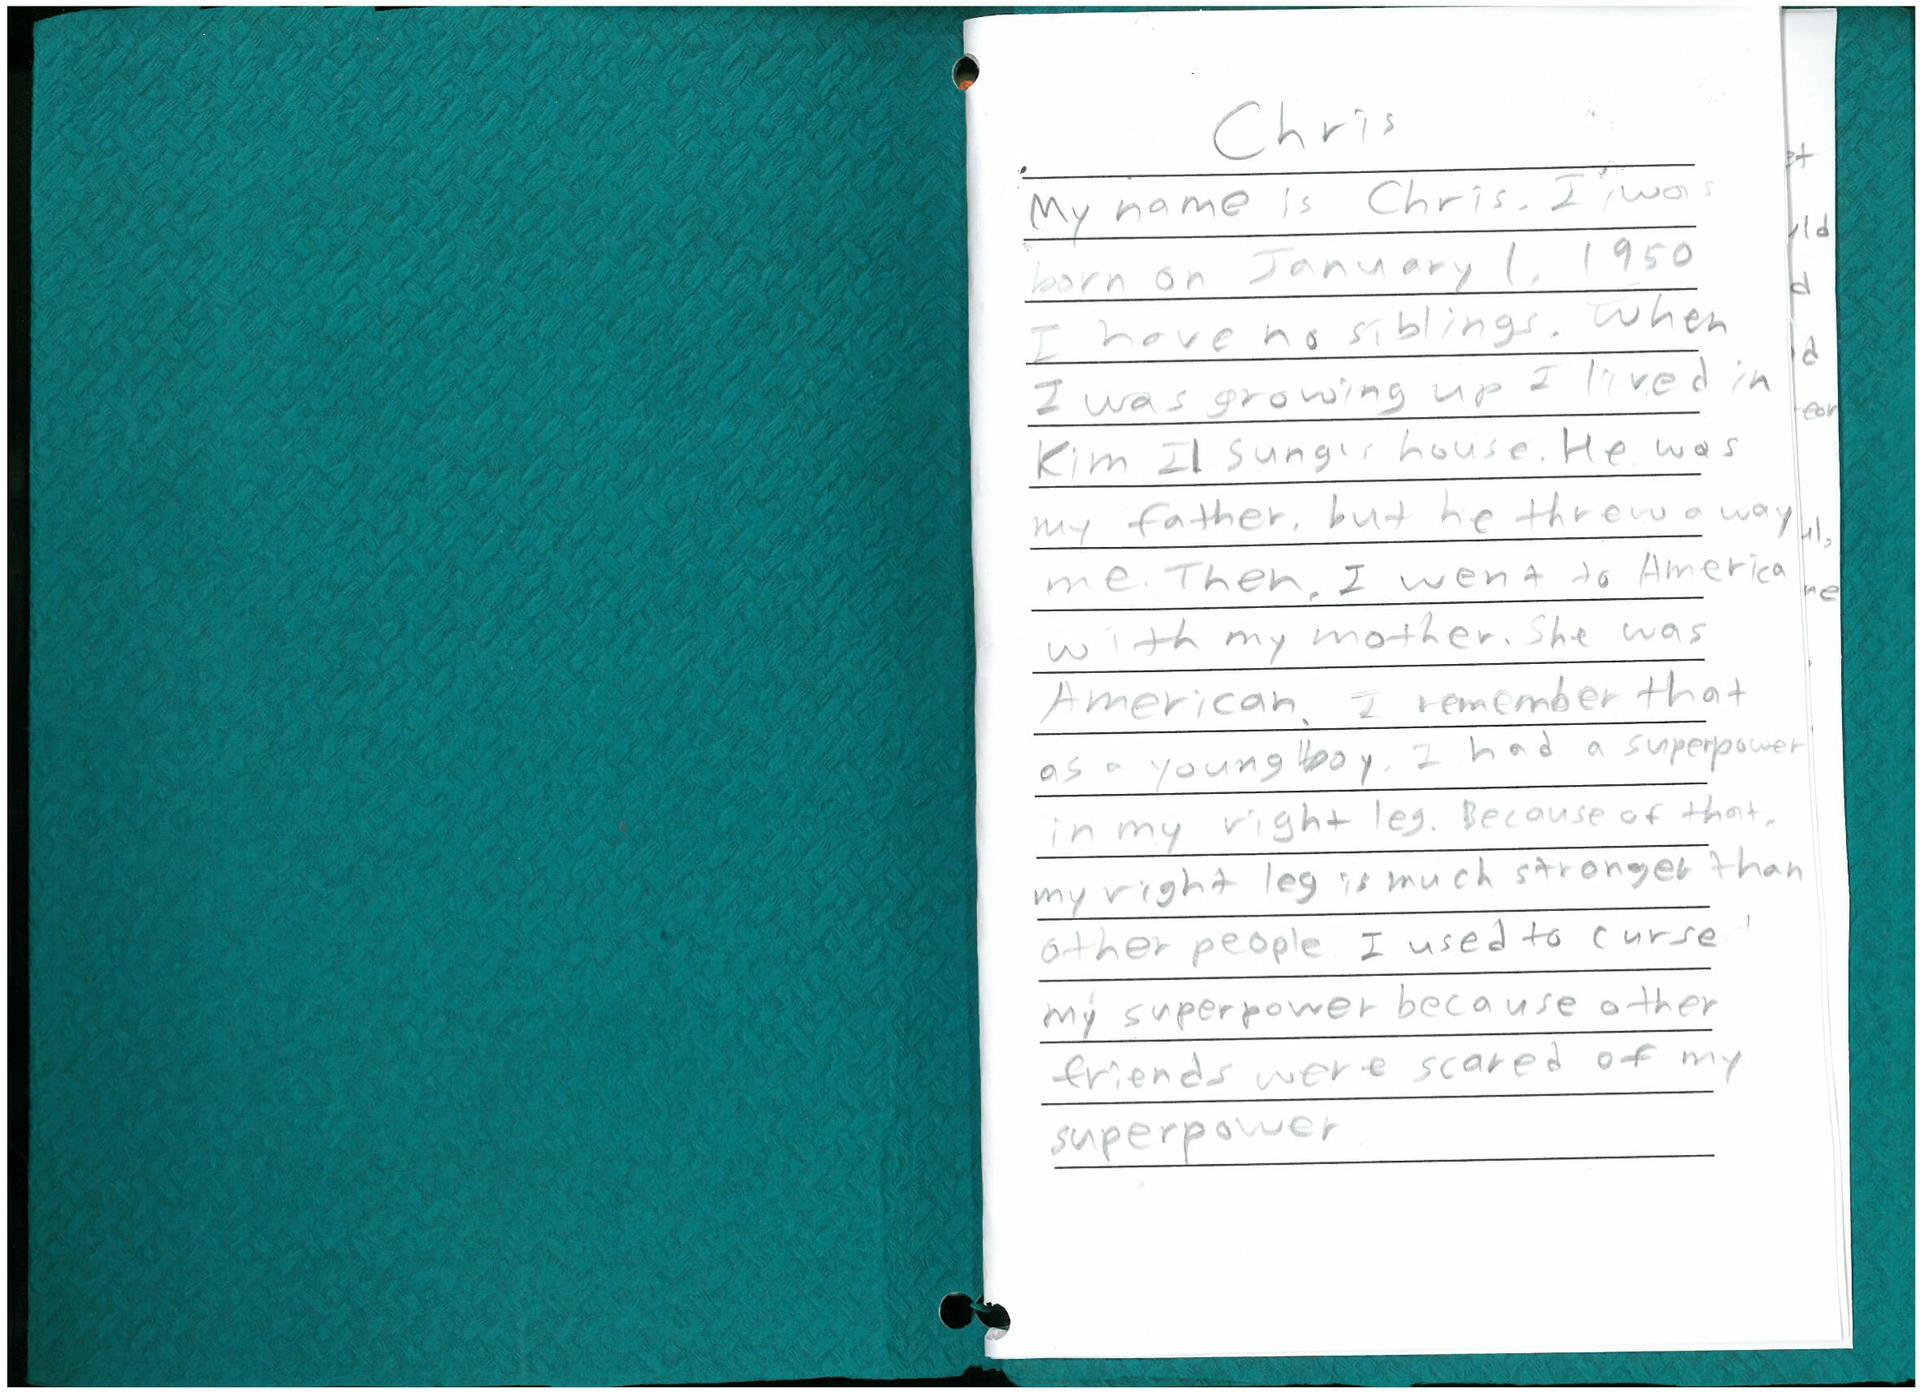 Chris
My name is Chris. I was
born on January 1, 1950
I have no siblings. When
I was growing up I lived in
Kim Il Sung's house. He was
my father, but he threw away
me. Then, I went to America
with my mother. She was
American, I remember that
as a young boy, I had a superpower
in my right leg. Because of that,
my right leg is much stronger than
other people I used to curse
my superpower because other
friends were scared of my
superpower